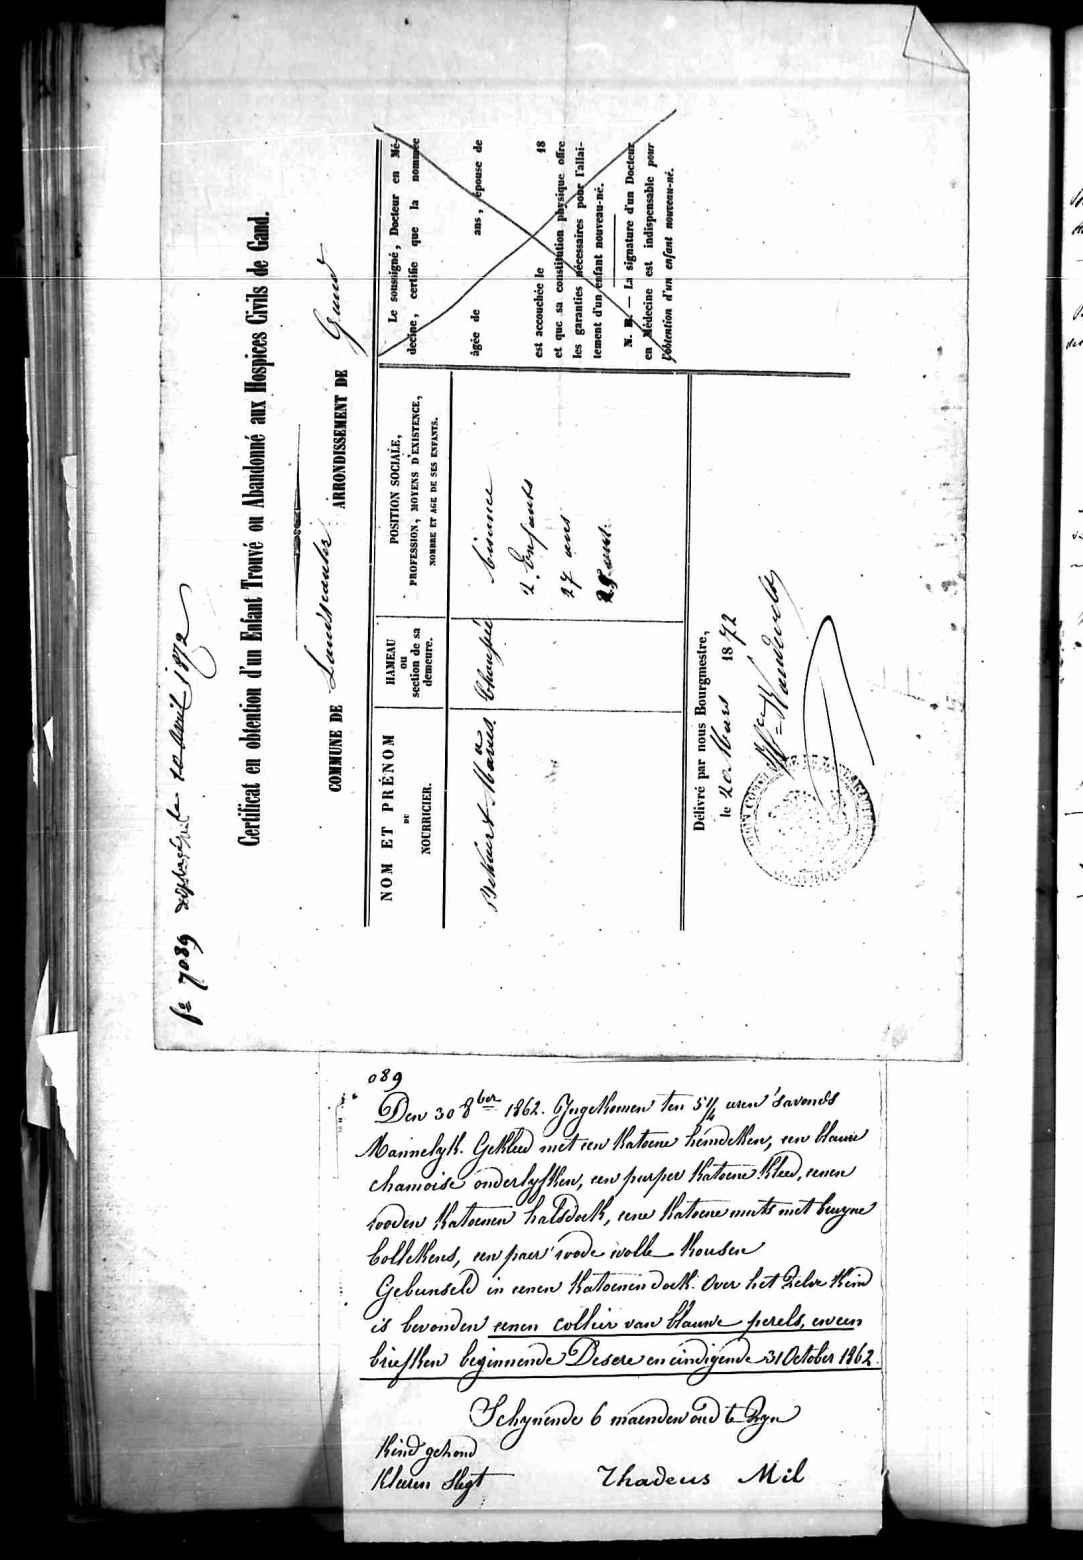 fo 7089 10 Avril 1872
Certificat en obtention d'un Enfant Trouvé ou Abandonné aux Hospices Civils de Gand.
COMMUNE DE ARRONDISSEMENT DE Gand
NOM ET PRÉNOM
DU
NOURRICIER.
HAMEAU
ou
section de sa
demeure.
POSITION SOCIALE,
PROFESSION, MOYENS D'EXISTENCE,
NOMBRE ET AGE DE SES ENFANTS.
Bekaert
2. Enfants
27 ans
25 ans
Le soussigné, Docteur en Mé-
decine, certifie que la nommée
âgée de ans, épouse de
est accouchée le 18
et que sa constitution physique offre
les garanties nécessaires pour l'allai-
tement d'un enfant nouveau-né.
N. B. — La signature d'un Docteur
en Médecine est indispensable pour
l'obtention d'un enfant nouveau-né.
Délivré par nous Bourgmestre,
le 20 Mars 1872
089
Den 30 8ber 1862. Ingekomen ten 5 1/4 uren 's avonds
Mannelyk. Gekleed met een katoene hemdeken, een blauw
chamoise onderlyfken, een purper katoene kleed, eenen
rooden katoenen halsdoek, eene katoene muts met bruyne
bollekens, een paer roode wolle kousen
Gebunseld in eenen katoenen doek. Over het zelve kind
is bevonden eenen collier van blauwe perels, en een
briefken beginnende Desere en eindigende 31 October 1862.
Schynende 6 maenden oud te zyn
Kind gezond
Kleeren slegt Thadeus Mil